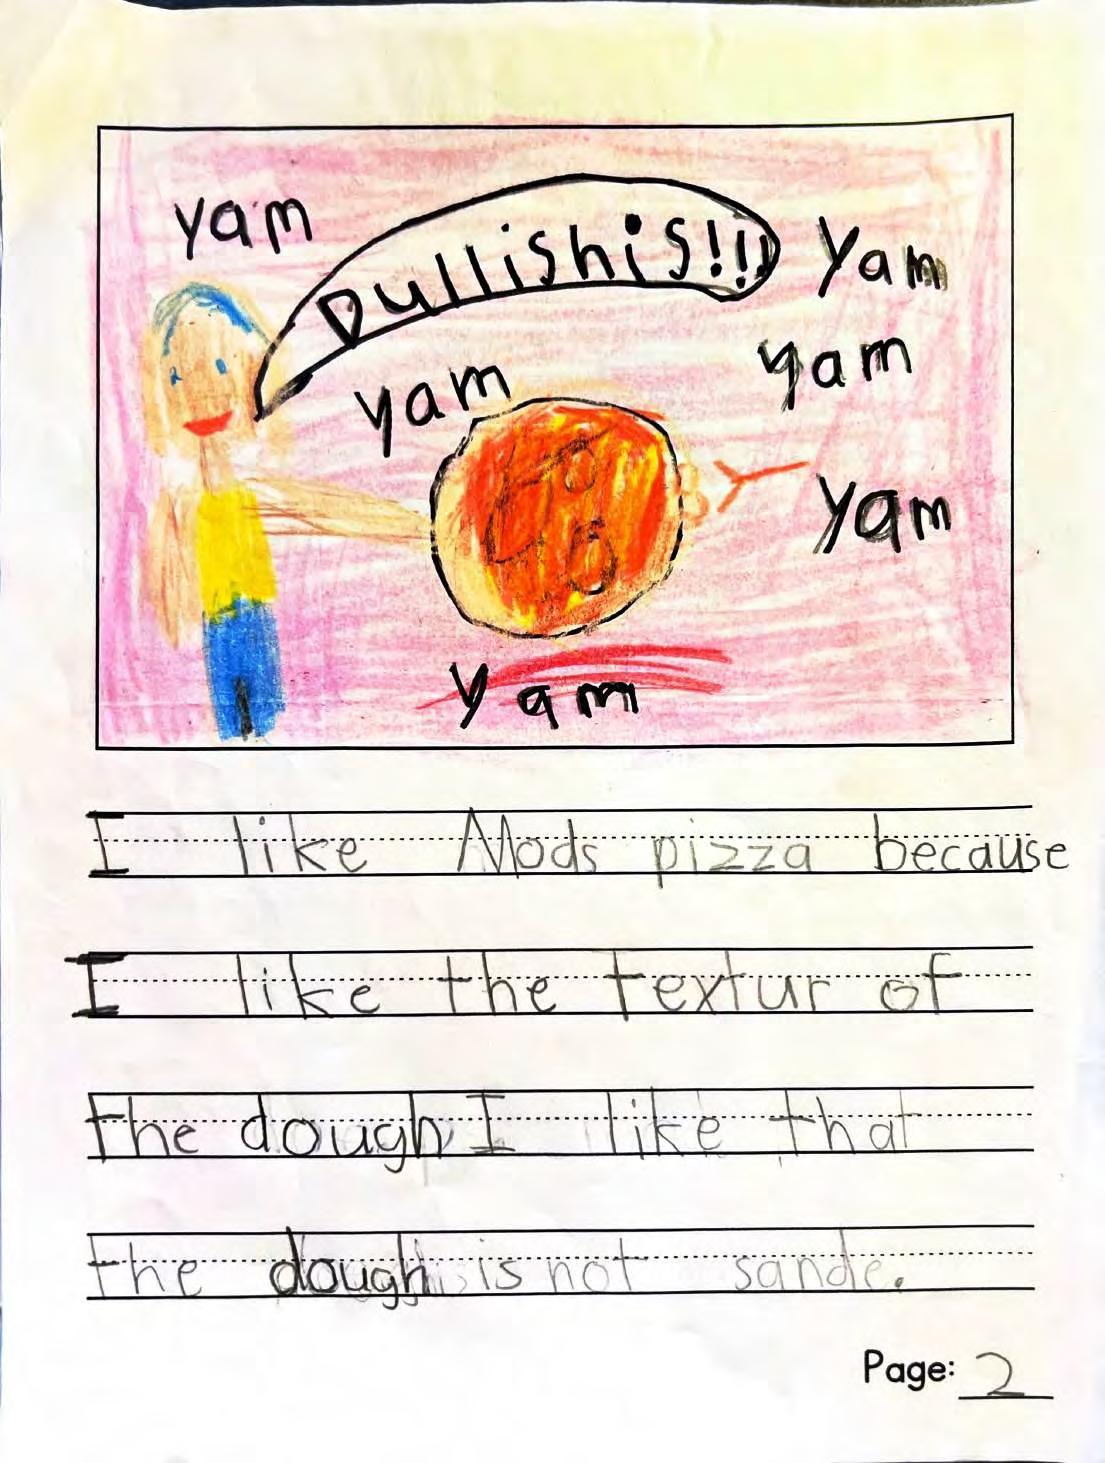 yam
Dullishis!!!
yam
yam
yam
yam
yam
I like Mods pizza because
I like the textur of
the dough I like that
the dough is not sande.
Page: 2